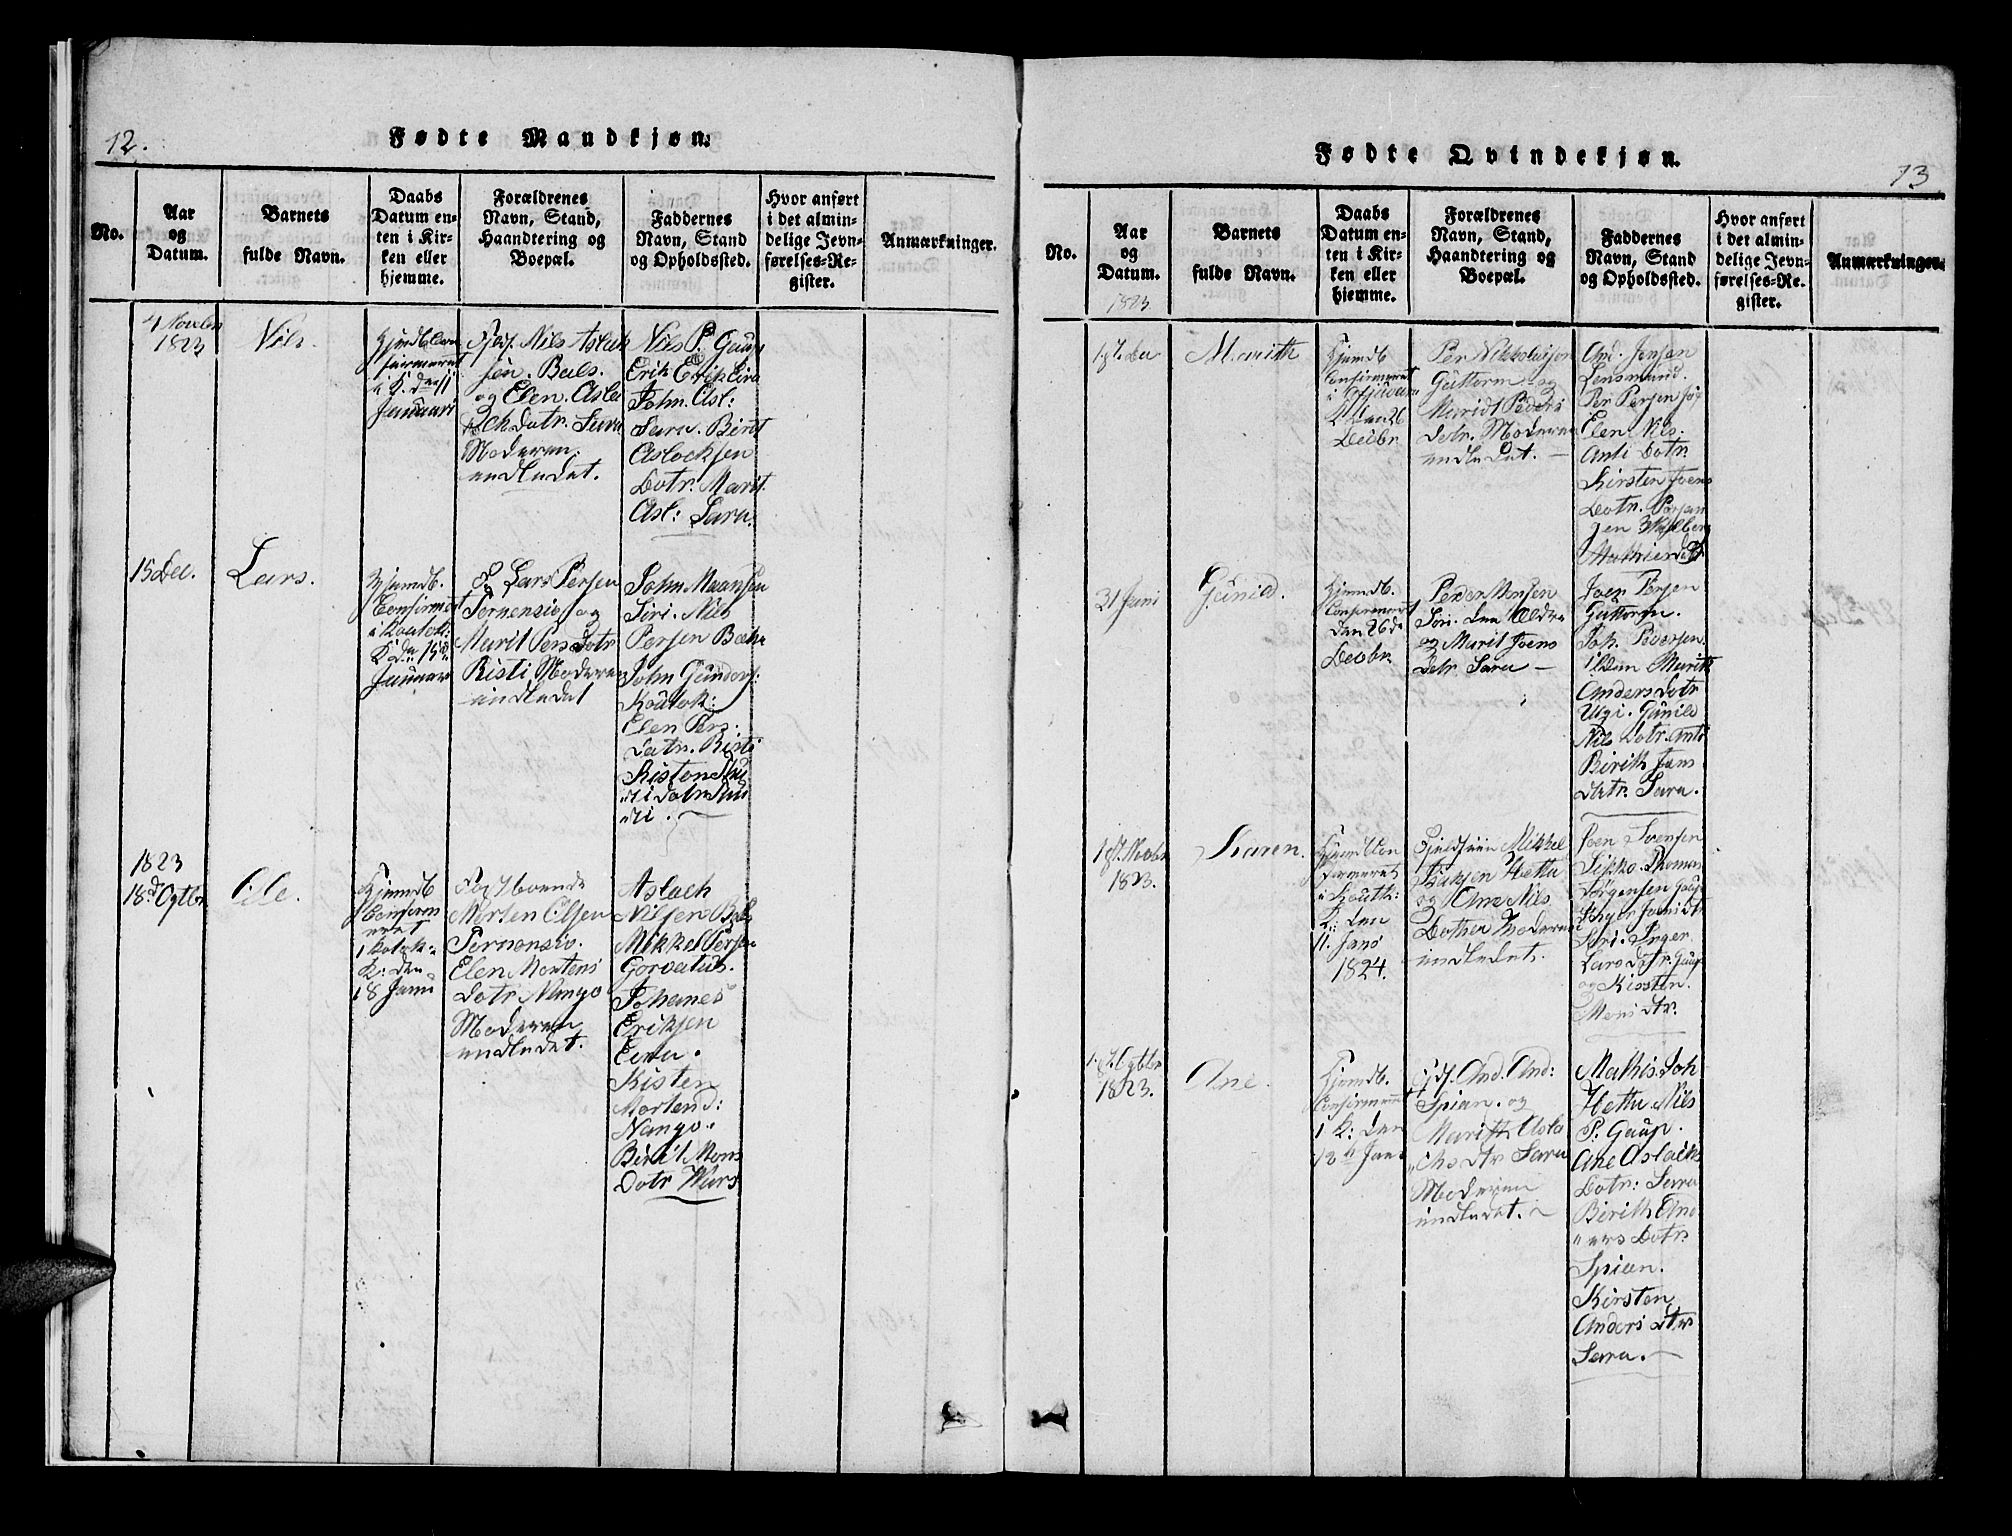 12.
Fødte Mandkjøn.
No.
Aar
og
Datum.
Barnets
fulde Navn.
Daabs
Datum en-
ten i Kir-
ken eller
hjemme.
Forældrenes
Navn, Stand,
Haandtering og
Boepæl.
Faddernes
Navn, Stand
og Opholdssted.
Hvor anført
i det almin-
delige Jevn-
førelses-Re-
gister.
Anmærkninger.
4 Novbr
1823
Nils.
Hjemdb. Con
firmeret
i K. den 11
Januari
Fjldf. Nils Aslak
sen. Bals.
og Elen. Asla
ch Datr. Sara
Moderen
indledet.
Nils P. Gaup
Erik Erik Eira
John. Asl:
Sara. Birit
Aslacksen
Dotr. Marit
Asl: Sara.
15 Dec.
Lars.
Hjemdb.
Confirmeret
i Koutok:
K. den 15de
Januar
Lars Persen
Pornensio og
Marit Pers Dotr
Risti Moderen
indledet
John Maansen
Siri. Nils
Persen Bæhr
John Gunders:
Koutok:
Elen Pers.
Datr. Risti
Risten
Dotr
1823
18d Ogtbr
Ole.
Hjemdb
Confirm
eret
i Koutok:
K: den
18 Janu
boende
Morten Olsen
Pornensio.
Elen Mortens
Dotr Nango
Moderen
indledet.
Aslach
Nilsen Bals
Mikkel Persen
Gorvatus.
Johanes
Eriksen
Eira.
Kisten
Mortend:
Nango.
Birit Mons
Dotr Wars
Fødte Qvindekjøn.
13
No.
Aar
og
Datum.
1823
Barnets
fulde Navn.
Daabs
Datum en-
ten i Kir-
ken eller
hjemme.
Forældrenes
Navn, Stand,
Haandtering og
Boepæl.
Faddernes
Navn, Stand
og Opholdssted.
Hvor anført
i det almin-
delige Jevn-
førelses-Re-
gister.
Anmærkninger.
Marith
Hjemdb
Confirmeret
i
K den 26
Decbr.
Per Nikkolaisen
Guttorm og
Maridt Peders
Dotr. Moderen
indledet. —
And. Jensen
Lensmand.
Per Persen
Elen Nils.
Anti Dotr.
Kirsten Joens
Dotr.
21 Juni
Gunild.
Hjemdb.
Confirmeret
den 26 de
Decbr.
Peder Monsen
Siri. den Ældre
og Marit Joens
Dotr. Sara —
Joen Persen
Guttorm.
Joh. Pedersen.
Marith
Anders Dotr
Utzi. Gunild
Nils Dotr. Anti
Birith Jans
Datr. Sara.
Novbr
1823.
Karen.
Hjemdb Con
firmeret
i Kouth:
K: den
11. Janu
1824.
Mikkel
Isaksen Hetta
og Ane Nils
Dother Moderen
indledet.
Joen Svensen
Sikko. Thomas
Jørgensen Gaup
Inger Joens Dtr
Siri. Inger
Lars Dotr. Gaup
og Kirsten.
Mons Dtr.
Ogtbr
1823.
Ane.
Hjemdb.
Confirmeret
i K: den
18 Janu
Fjdf. And. And:
Spian. og
Marith Asla
chs dtr Sara
Moderen
indledet. —
Mathis. Joh
Hetta Nils
P. Gaup.
Ane Aslachs
Dotr: Sara
Birith And
ers Dotr.
Spian.
Kirsten
Anders Dtr
Sara. —